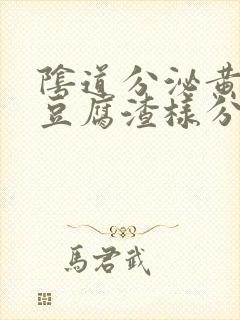 陰道分泌黃
豆腐渣樣分
馬君武